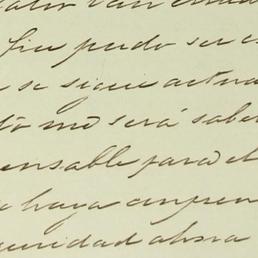 fin pudo ser
se sigue actua
to me será saber
ensable para el
haya empren
uridad ahora